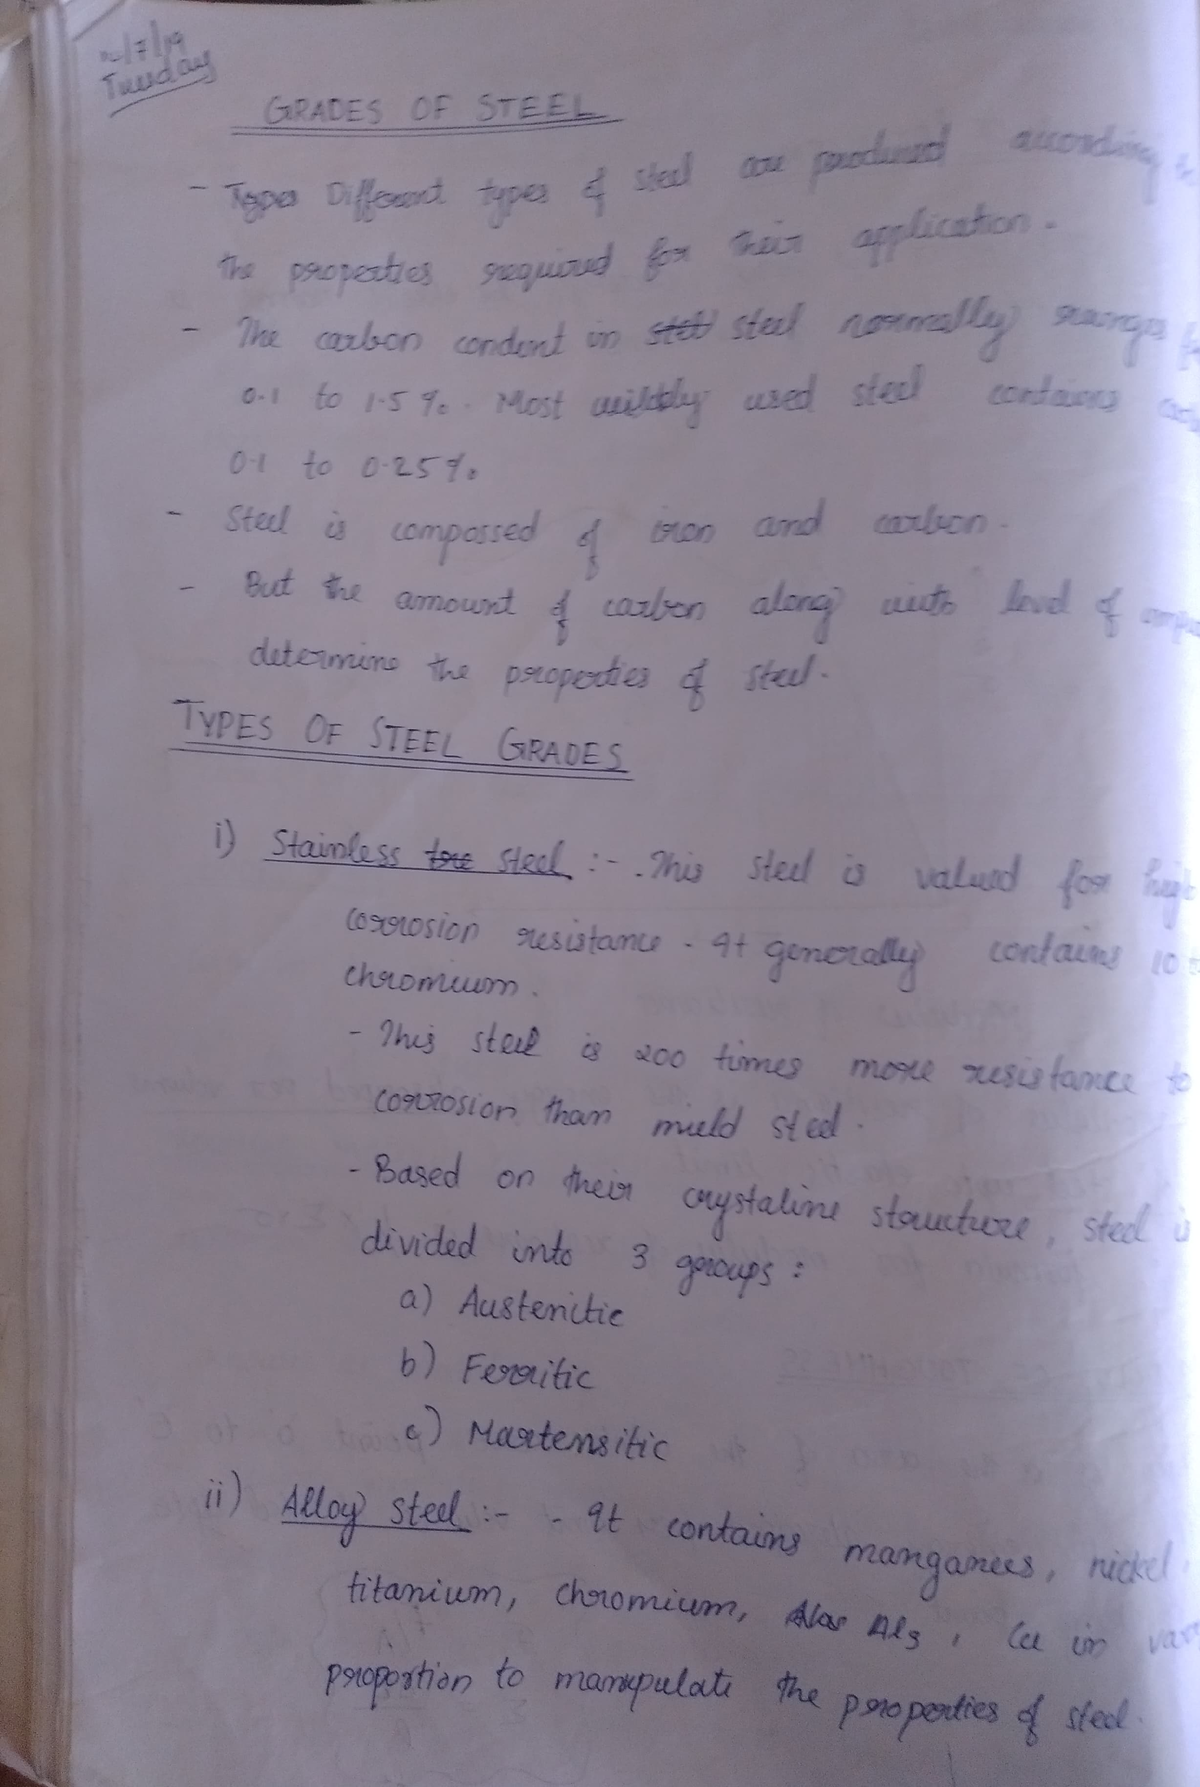 /7/19
Tuesday
GRADES OF STEEL
- Types Different types of steel are produced according to
the properties required for their application.
- The carbon condent in steel steel normally ranges
0.1 to 1.5%. Most wildely used steel contains
0.1 to 0.25%
- Steel is compossed of iron and carbon.
- But the amount of carbon along with level of
determine the properties of steel.
TYPES OF STEEL GRADES
i) Stainless steel :- . This steel is valued for high
corrosion resistance. It generally contains 10
chromium.
- This steel is 200 times more resistance to
corrosion than mield steel.
- Based on their crystaline structure, steel is
divided into 3 groups :
a) Austenitic
b) Ferritic
c) Martensitic
ii) Alloy steel :- - It contains manganees, nickel,
titanium, chromium, Als, Cu in
proportion to manupulate the properties of steel.